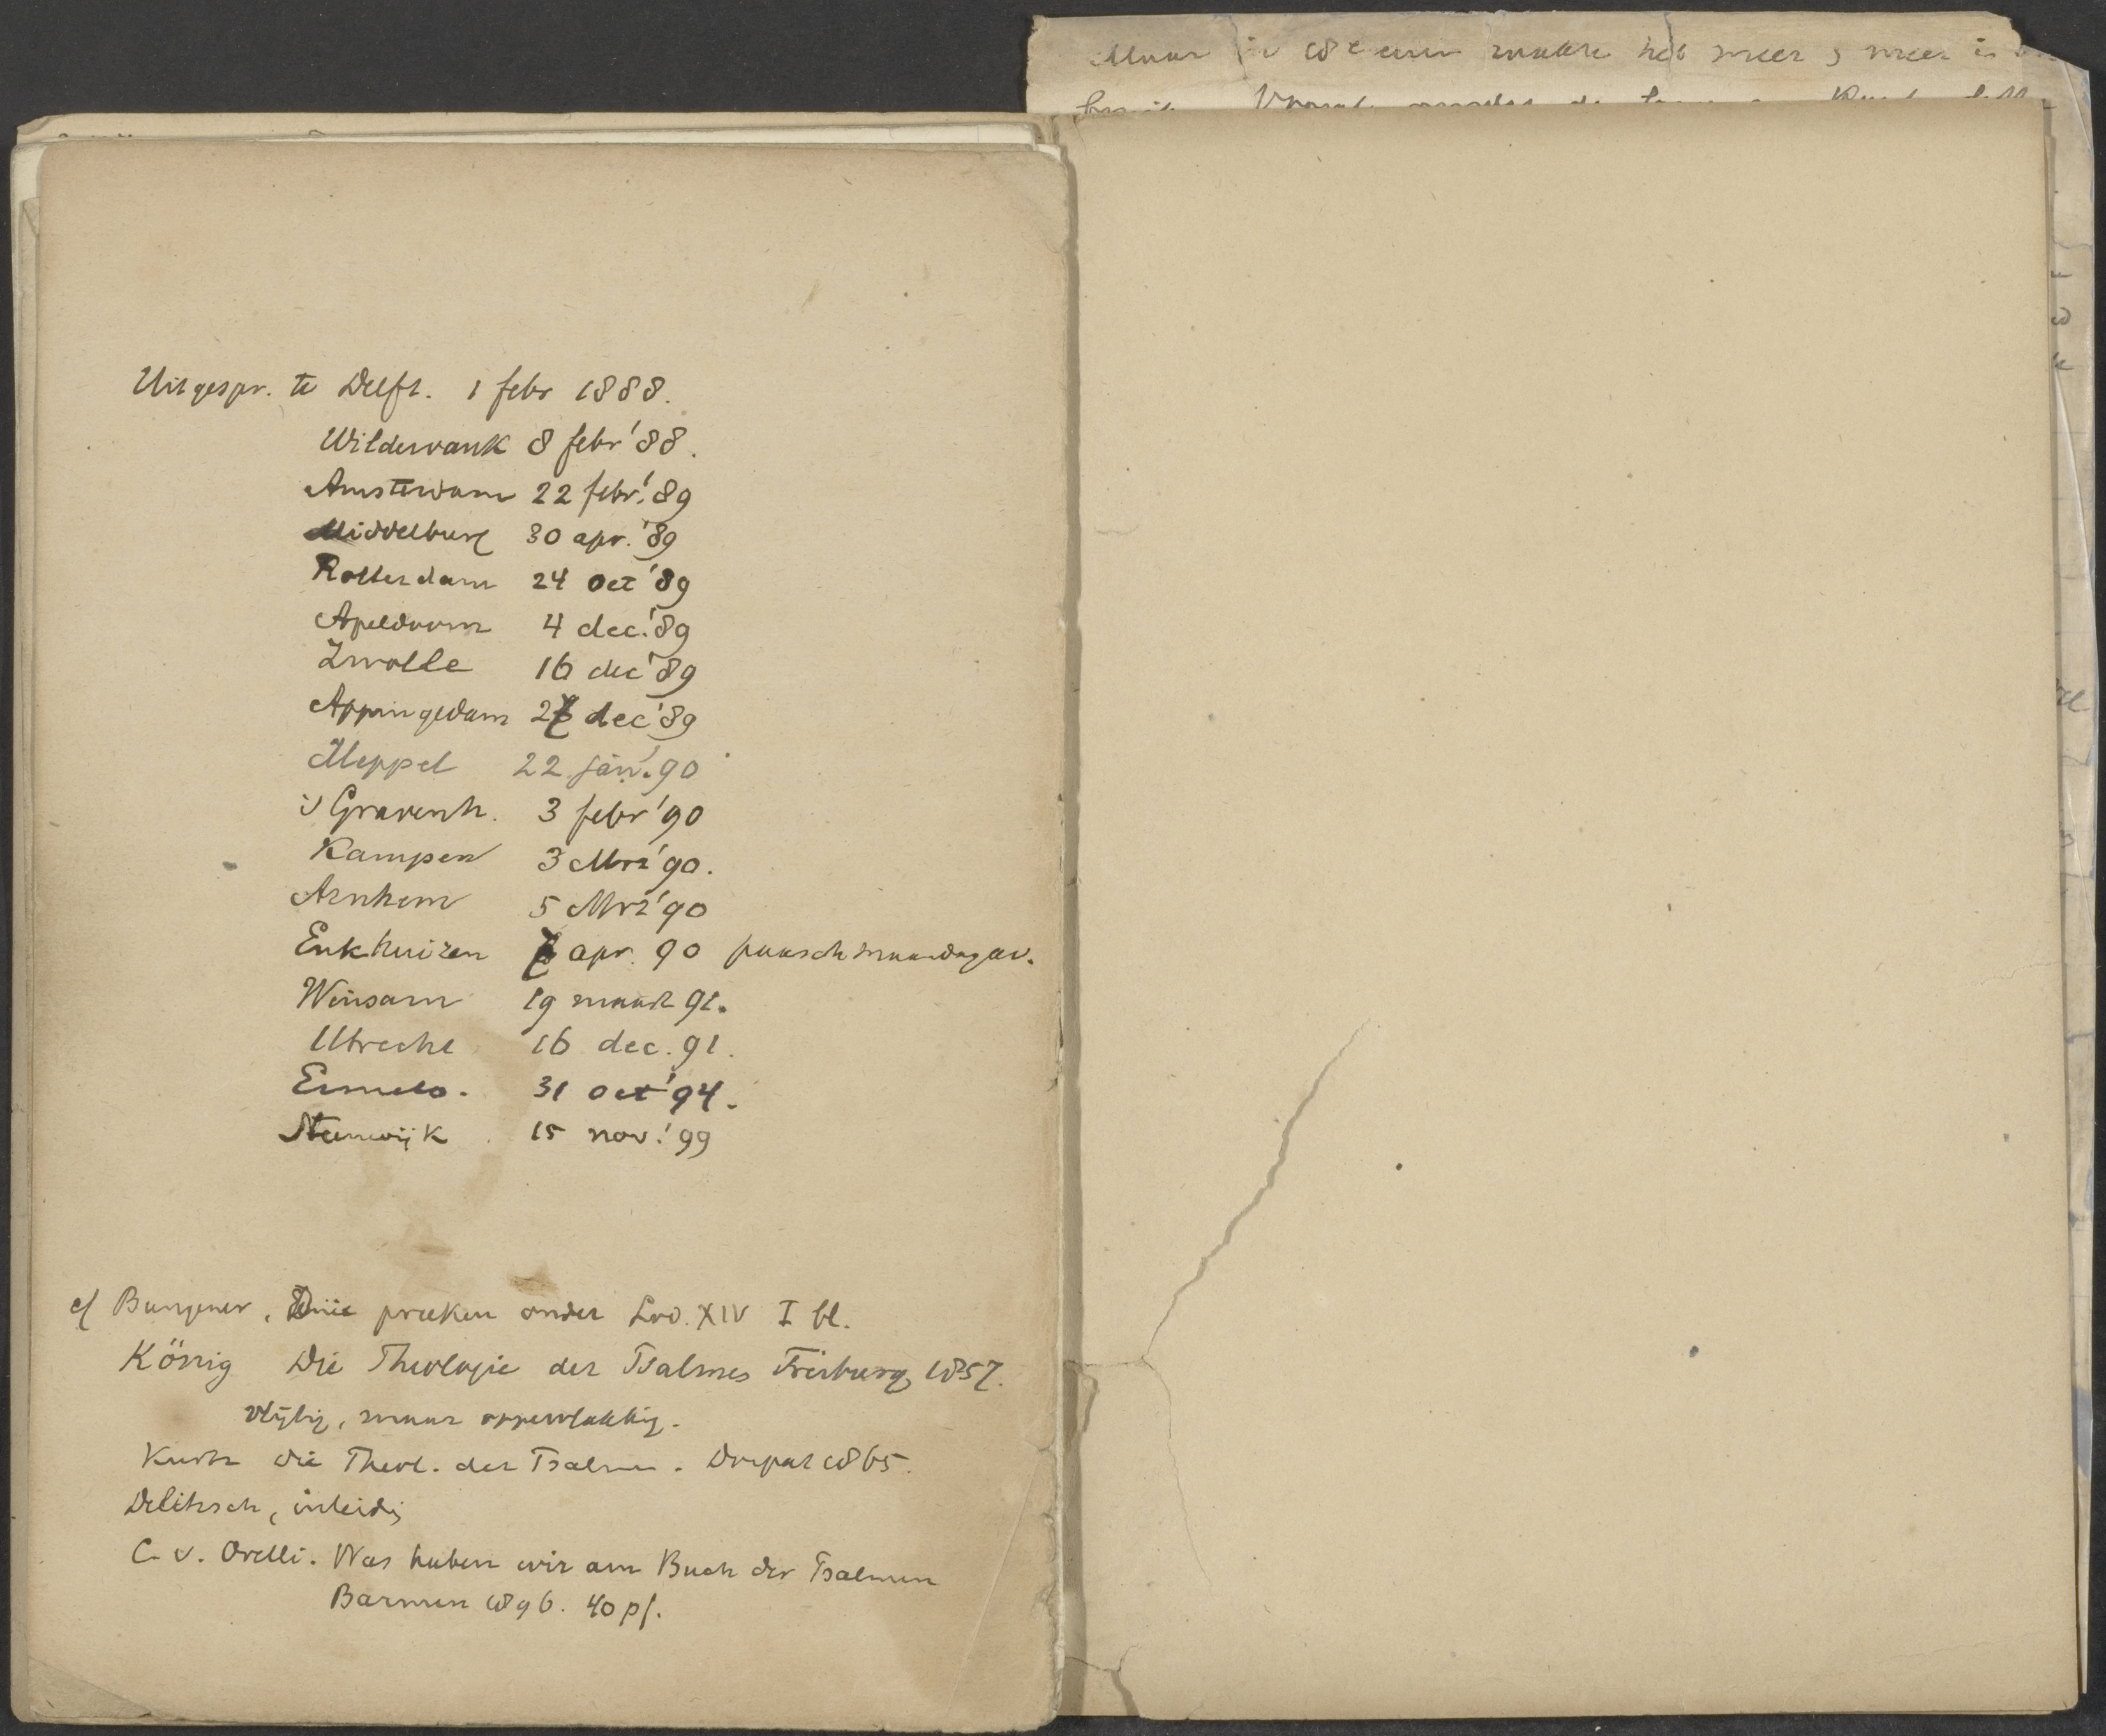 Maar in 18e eeuw raakte het meer & meer in
Uitgespr. te Delft. 1 febr 1888.
Wildervank 8 febr '88.
Amsterdam 22 febr. '89
Middelburg 30 apr. '89
Rotterdam 24 Oct '89
Apeldoorn 4 dec. '89
Zwolle 16 dec '89
Appingedam dec '89
Meppel 22 jan. '90
's Gravenh. 3 febr '90
Kampen 3 Mrt '90.
Arnhem 5 Mrt '90
Enkhuizen apr. 90 paaschmaandagav.
Winsum 19 maart 91.
Utrecht 16 dec. 91.
Ermelo. 31 Oct '94.
Steenwijk 15 nov. '99
cf Bungener, Drie preeken onder Lod. XIV I bl.
König Die Theologie der Psalmen Freiburg 1857.
vlijtig, maar oppervlakkig.
Kurtz die Theol. der Psalmen. Dorpat 1865.
Delitzsch, inleidg
C. v. Orelli. Was haben wir am Buch der Psalmen
Barmen 1896. 40 pf.